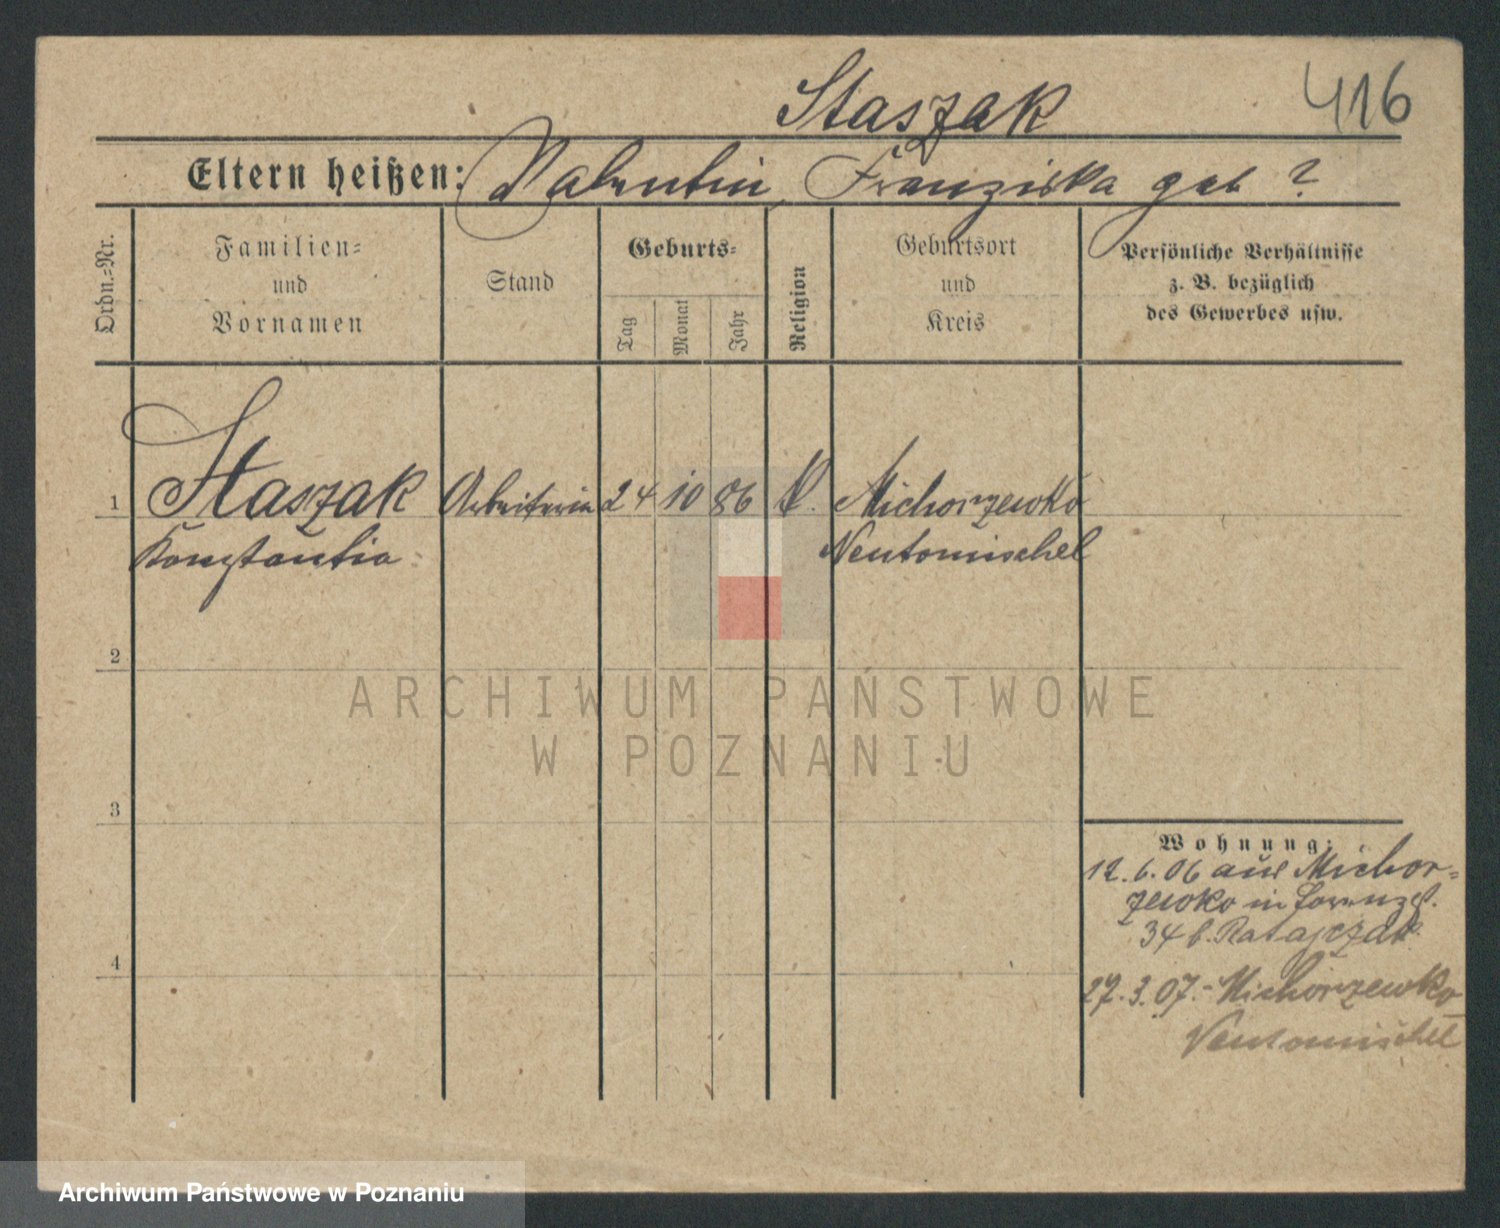 Staszak
416
Eltern heißen: Valentin, Franziska geb ?
Ordn.-Nr.
Familien-
und
Vornamen
Stand
Geburts-
Tag
Monat
Jahr
Religion
Geburtsort
und
Kreis
Persönliche Verhältnisse
z. B. bezüglich
des Gewerbes usw.
1 Staszak Arbeiterin 24 10 86 k. Michorzewko
Konstantia Neutomischel
2
3
4
Wohnung:
12.6.06 aus Michor-
zewko in Lorenzst.
34 b. Ratajczak
27.3.07.- Michorzewko
Neutomischel
ARCHIWUM PAŃSTWOWE
W POZNANIU
Archiwum Państwowe w Poznaniu